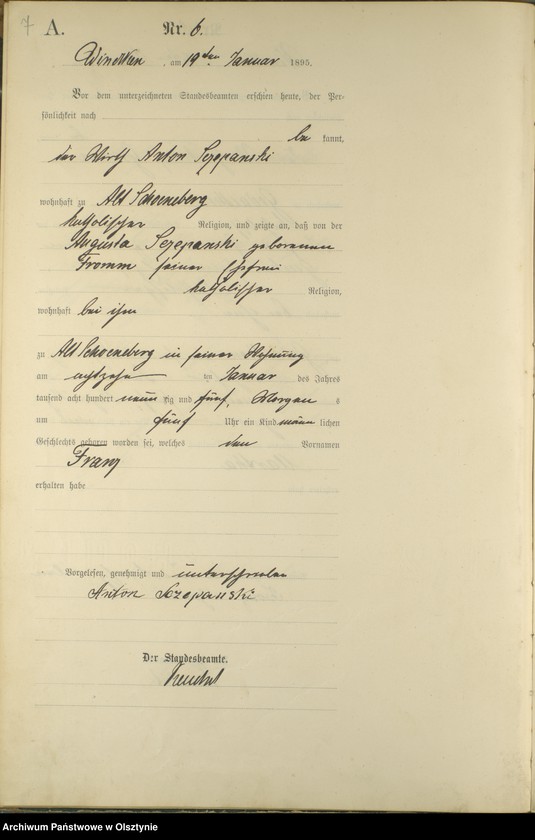 7
A.
Nr. 6.
am 19ten Januar 1895.
Vor dem unterzeichneten Standesbeamten erschien heute, der Per-
sönlichkeit nach
be kannt,
der Wirth Anton Szepanski
wohnhaft zu Alt Schoeneberg
katholischer Religion, und zeigte an, daß von der
Augusta Szepanski geborenen
Fromm seiner Ehefrau
katholischer Religion,
wohnhaft bei ihm
zu Alt Schoeneberg in seiner Wohnung
am achtzehn ten Januar des Jahres
tausend acht hundert neun zig und fünf, Morgen s
um fünf Uhr ein Kind männ lichen
Geschlechts geboren worden sei, welches den Vornamen
Franz
erhalten habe
Vorgelesen, genehmigt und unterschrieben
Anton Szepanski
Der Standesbeamte.
Archiwum Państwowe w Olsztynie